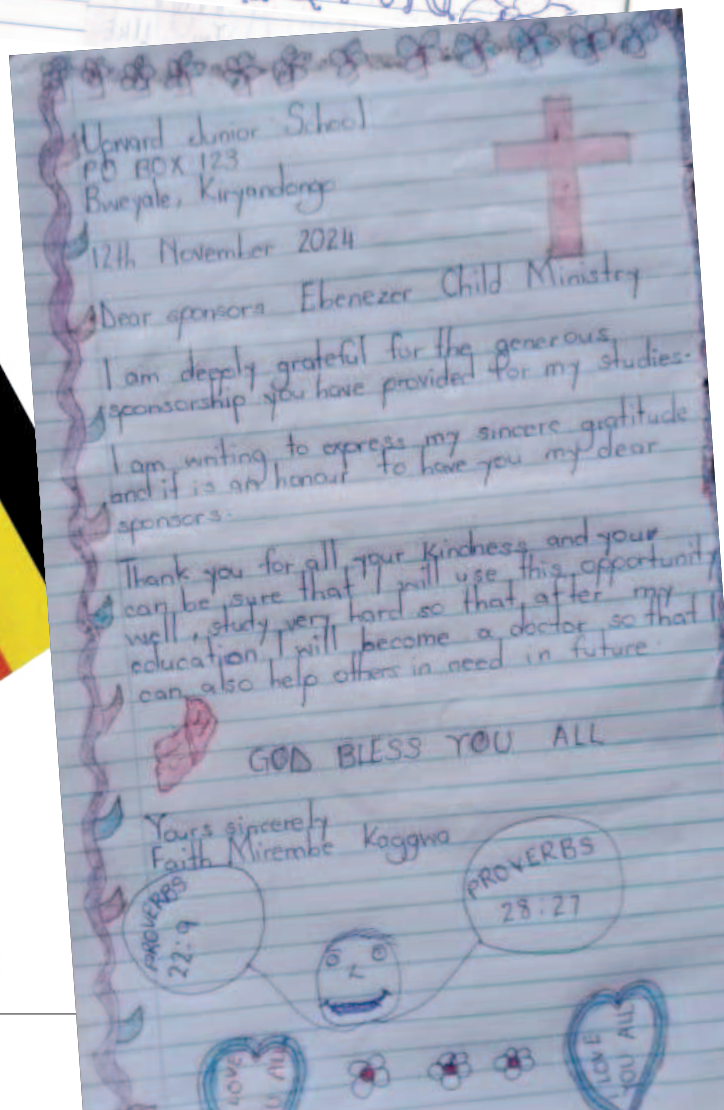 Upward Junior School
PO BOX 123
Bweyale, Kiryandongo
12th November 2024
Dear sponsors Ebenezer Child Ministry
I am deeply grateful for the generous
sponsorship you have provided for my studies.
I am writing to express my sincere gratitude
and it is an honour to have you my dear
sponsors.
Thank you for all your kindness and your
can be sure that I will use this opportunity
well, study very hard so that after my
education I will become a doctor so that I
can also help others in need in future.
GOD BLESS YOU ALL
Yours sincerely
Faith Mirembe Kaggwa
PROVERBS
22:9
PROVERBS
28:27
LOVE
U ALL
LOVE
YOU ALL